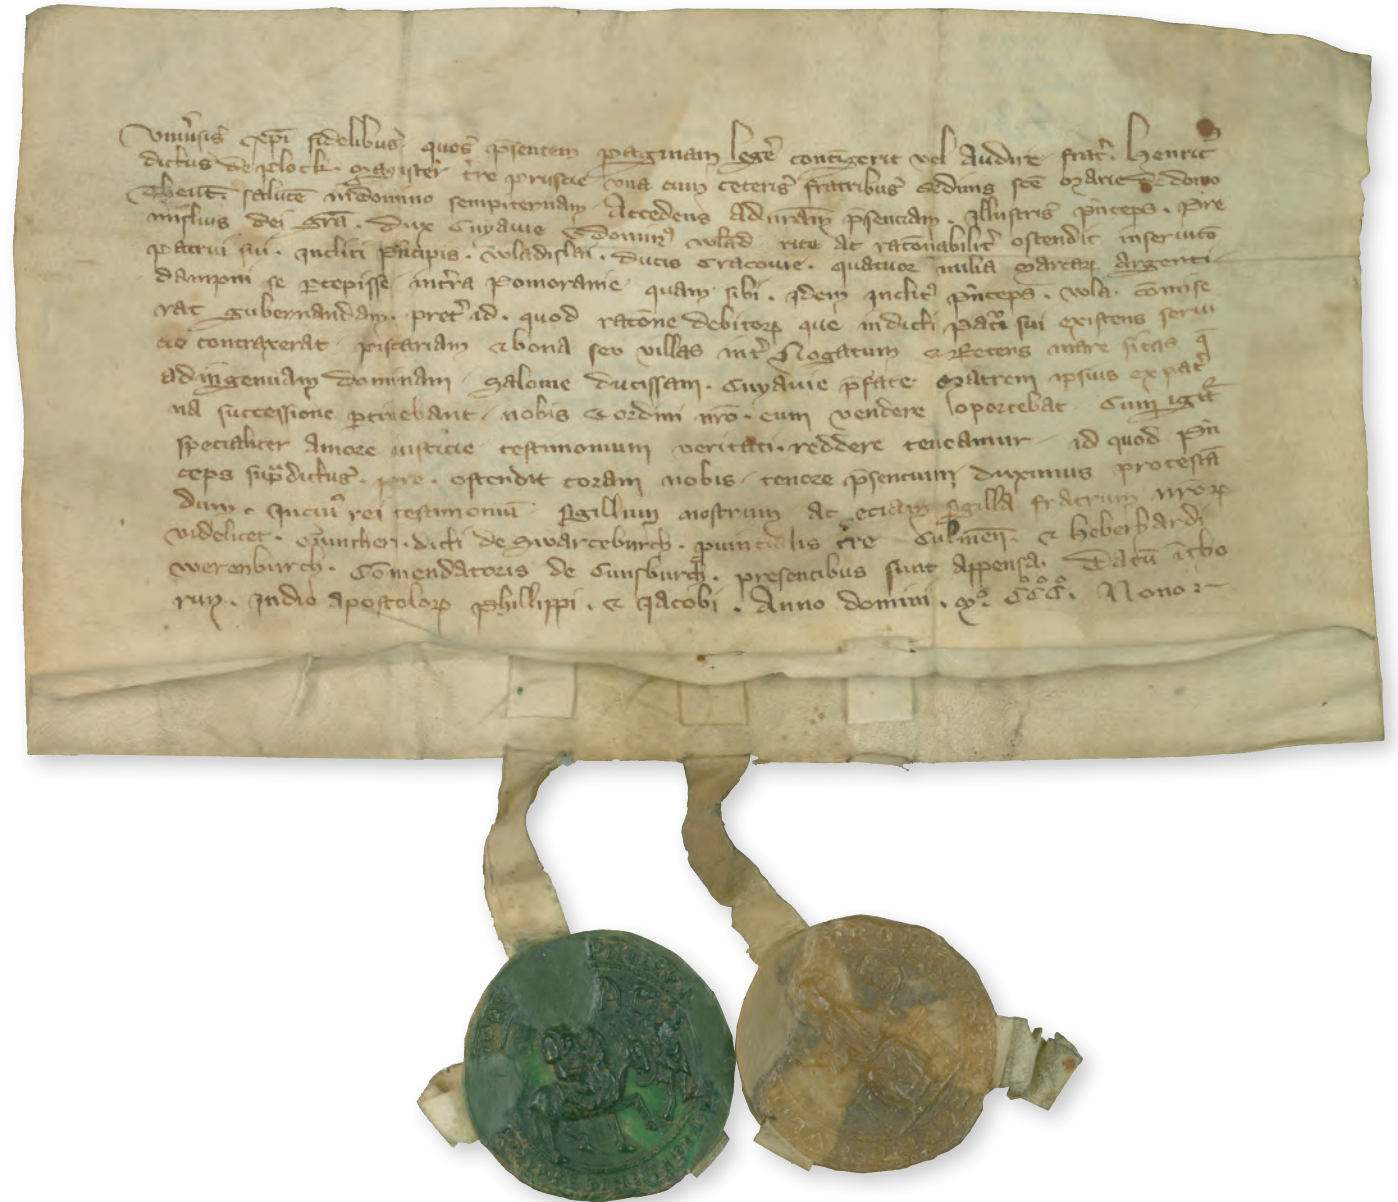 Univ̄sis xp̄i fidelibus quos p̄sentem paginam leger̄ contigerit vel Audire frat̄ Henric9
dictus de Ploczk. Magister tr̄re pruscie vna cum ceteris fratribus ordinis sc̄e Marie de domo
Theut. salutē in domino sempiternam. Accedens Ad nr̄am p̄senciam. Illustris p̄nceps. Pre
mislius dei gr̄a. dux Cuyauie & domin9 wlad rite ac rac̄onabilit̄ ostendit inseruicō
patrui sui. Incliti p̄ncipis. wladislai. ducis Cracouie. quatuor milia Marcar̄ Argenti
dampni se p̄cepisse in tr̄ra Pomoranie quam sibi. Idem Inclit9 p̄nceps. wla. cōmise
rat gubernandam. pret̄ id. quod rac̄one debitor̄ que in dicti patr̄i sui existens serui
cio contraxerat piscariam & bona seu villas int̄ Nogatum & Recens mare sitas q̄
ad ingenuam dominam Salome ducissam. Cuyauie p̄fate Matrem ipsius ex pat̄
na successione p̄tinebant. nobis & ordini nr̄o. eum vendere oportebat Cum igit̄
specialiter Amore iusticie testimonium veritati. reddere teneamur id quod p̄n
ceps sup̄dictus. pre. ostendit coram nobis tenore p̄sencium duximus protestā
dum. In cui9 rei testimoniū Sigillum nostrum ac eciam sigilla fratrum nr̄or̄
videlicet. Guntheri. dicti de Swarczburch. puincialis tr̄re Culmen̄. & Heberhardi
werenburch. Cōmendatoris de Cunsburch. presencibus sunt Appensa. Datū ī tho
run. In die apostolor̄ Phillippi. & Jacobi. Anno domini. Mº. CºCºCº. Nono: